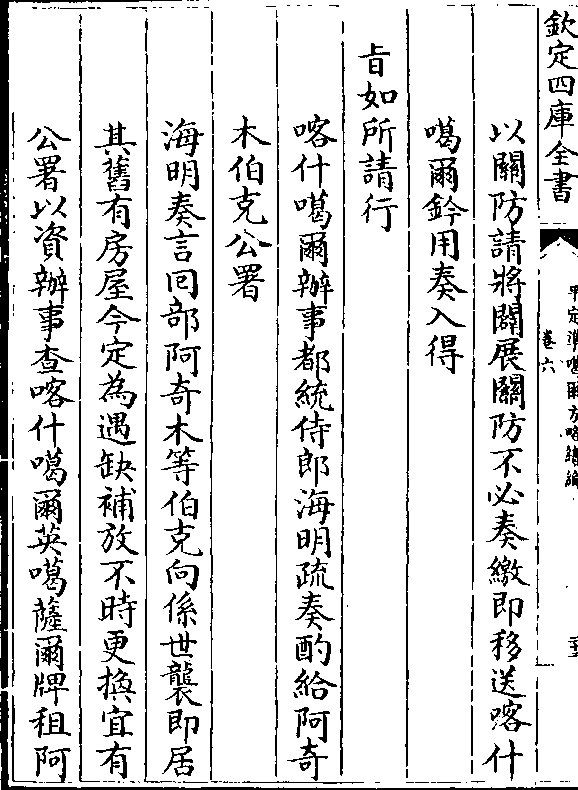 欽定四庫全書
平定準噶爾方略續編
卷六
以關防請將闢展關防不必奏繳即移送喀什
噶爾鈐用奏入得
旨如所請行
喀什噶爾辦事都統侍郎海明疏奏酌給阿奇
木伯克公署
海明奏言回部阿奇木等伯克向係世襲即居
其舊有房屋今定為遇缺補放不時更換宜有
公署以資辦事查喀什噶爾英噶薩爾牌租阿